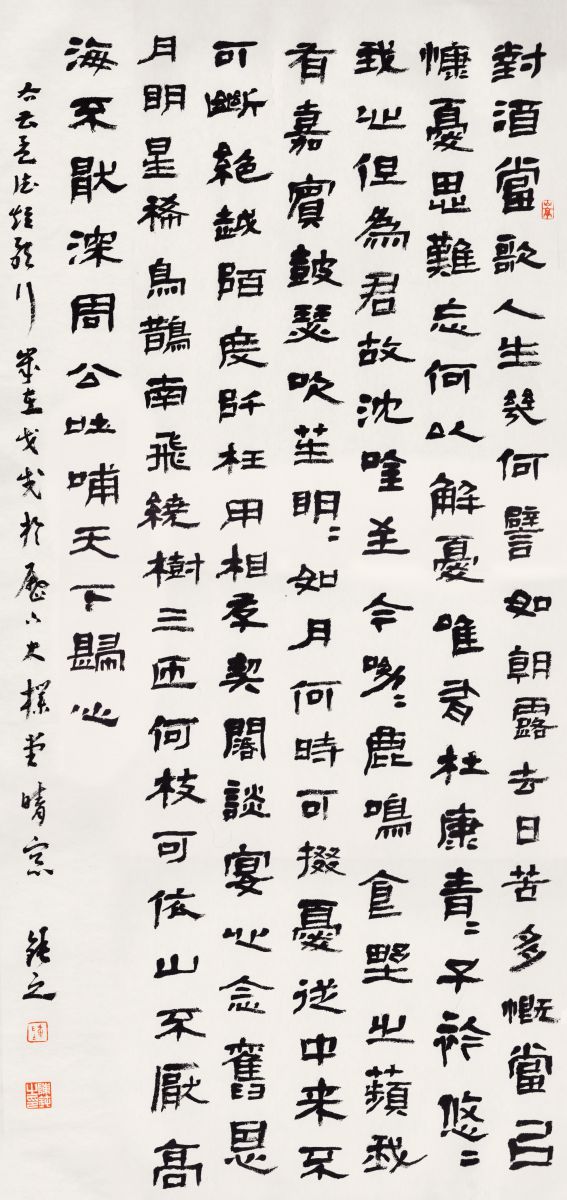 對酒當歌人生幾何譬如朝露去日苦多慨當㠯
慷憂思難忘何以解憂唯有杜康青〻子衿悠〻
我心但為君故沈唫至今呦〻鹿鳴食野之蘋我
有嘉賓鼓瑟吹笙明〻如月何時可掇憂從中来不
可斷絕越陌度阡枉用相存契闊談宴心念舊恩
月明星稀烏鵲南飛繞樹三匝何枝可依山不厭高
海不厭深周公吐哺天下歸心
右孟德短歌行歲在戊戌於歷下大樸堂晴窗